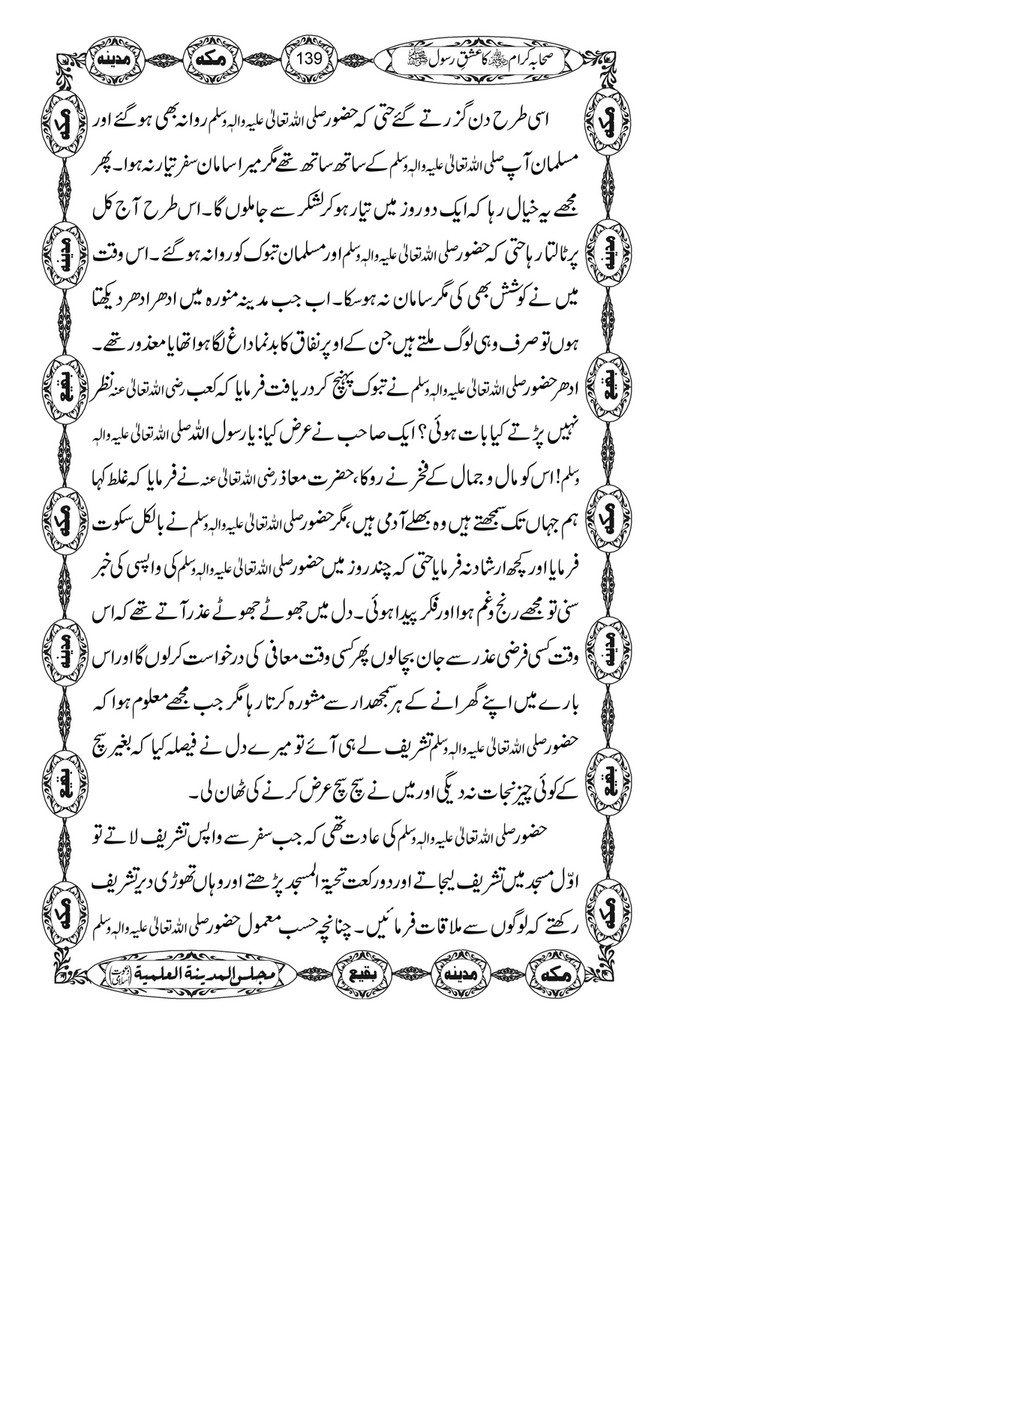 صحابہ کرام کا عشق رسول ﷺ 139 مکہ مدینہ
اسی طرح دن گزرتے گئے حتی کہ حضور صلی اللہ تعالیٰ علیہ والہٖ وسلم روانہ بھی ہو گئے اور
مسلمان آپ صلی اللہ تعالیٰ علیہ والہٖ وسلم کے ساتھ ساتھ تھے مگر میرا سامان سفر تیار نہ ہوا۔ پھر
مجھے یہ خیال رہا کہ ایک دو روز میں تیار ہو کر لشکر سے جا ملوں گا۔ اس طرح آج کل
پر ٹالتا رہا حتی کہ حضور صلی اللہ تعالیٰ علیہ والہٖ وسلم اور مسلمان تبوک کو روانہ ہو گئے۔ اس وقت
میں نے کوشش بھی کی مگر سامان نہ ہو سکا۔ اب جب مدینہ منورہ میں ادھر ادھر دیکھتا
ہوں تو صرف وہی لوگ ملتے ہیں جن کے اوپر نفاق کا بدنما داغ لگا ہوا تھا یا معذور تھے۔
ادھر حضور صلی اللہ تعالیٰ علیہ والہٖ وسلم نے تبوک پہنچ کر دریافت فرمایا کہ کعب رضی اللہ تعالیٰ عنہ نظر
نہیں پڑتے کیا بات ہوئی؟ ایک صاحب نے عرض کیا: یا رسول اللہ صلی اللہ تعالیٰ علیہ والہٖ
وسلم! اس کو مال و جمال کے فخر نے روکا، حضرت معاذ رضی اللہ تعالیٰ عنہ نے فرمایا کہ غلط کہا
ہم جہاں تک سمجھتے ہیں وہ بھلے آدمی ہیں، مگر حضور صلی اللہ تعالیٰ علیہ والہٖ وسلم نے بالکل سکوت
فرمایا اور کچھ ارشاد نہ فرمایا حتی کہ چند روز میں حضور صلی اللہ تعالیٰ علیہ والہٖ وسلم کی واپسی کی خبر
سنی تو مجھے رنج و غم ہوا اور فکر پیدا ہوئی۔ دل میں جھوٹے جھوٹے عذر آتے تھے کہ اس
وقت کسی فرضی عذر سے جان بچا لوں پھر کسی وقت معافی کی درخواست کر لوں گا اور اس
بارے میں اپنے گھرانے کے ہر سمجھدار سے مشورہ کرتا رہا مگر جب مجھے معلوم ہوا کہ
حضور صلی اللہ تعالیٰ علیہ والہٖ وسلم تشریف لے ہی آئے تو میرے دل نے فیصلہ کیا کہ بغیر سچ
کے کوئی چیز نجات نہ دیگی اور میں نے سچ سچ عرض کرنے کی ٹھان لی۔
حضور صلی اللہ تعالیٰ علیہ والہٖ وسلم کی عادت تھی کہ جب سفر سے واپس تشریف لاتے تو
اوّل مسجد میں تشریف لیجاتے اور دو رکعت تحیۃ المسجد پڑھتے اور وہاں تھوڑی دیر تشریف
رکھتے کہ لوگوں سے ملاقات فرمائیں۔ چنانچہ حسب معمول حضور صلی اللہ تعالیٰ علیہ والہٖ وسلم
مکہ
مدینہ
بقیع
مکہ
مدینہ
بقیع
مکہ
مکہ
مدینہ
بقیع
مکہ
مدینہ
بقیع
مکہ
مکہ مدینہ بقیع مجلس المدینۃ العلمیۃ (دعوت اسلامی)